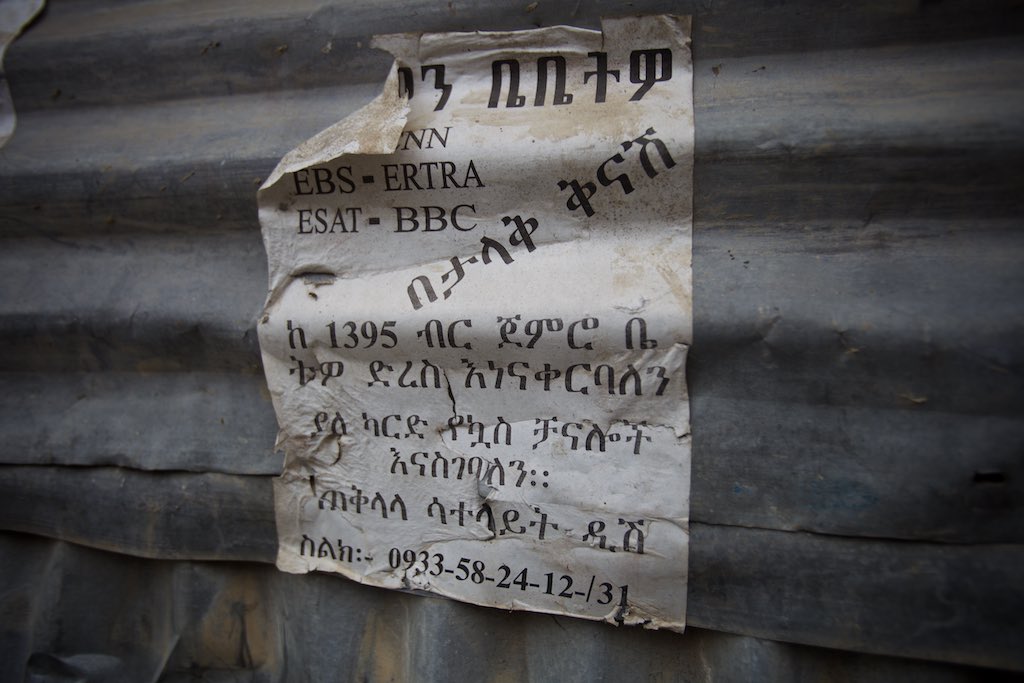 ን ቤቤትዎ
NN
EBS - ERTRA
ESAT - BBC
በታላቅ ቅናሽ
ከ 1395 ብር ጀምሮ ቤ
ትዎ ድረስ እነናቀርባለን
ያለ ካርድ የኳስ ቻናሎች
እናስገባለን፡፡
ጠቅላላ ሳተላይት ዲሽ
ስልክ፡- 0933-58-24-12-/31